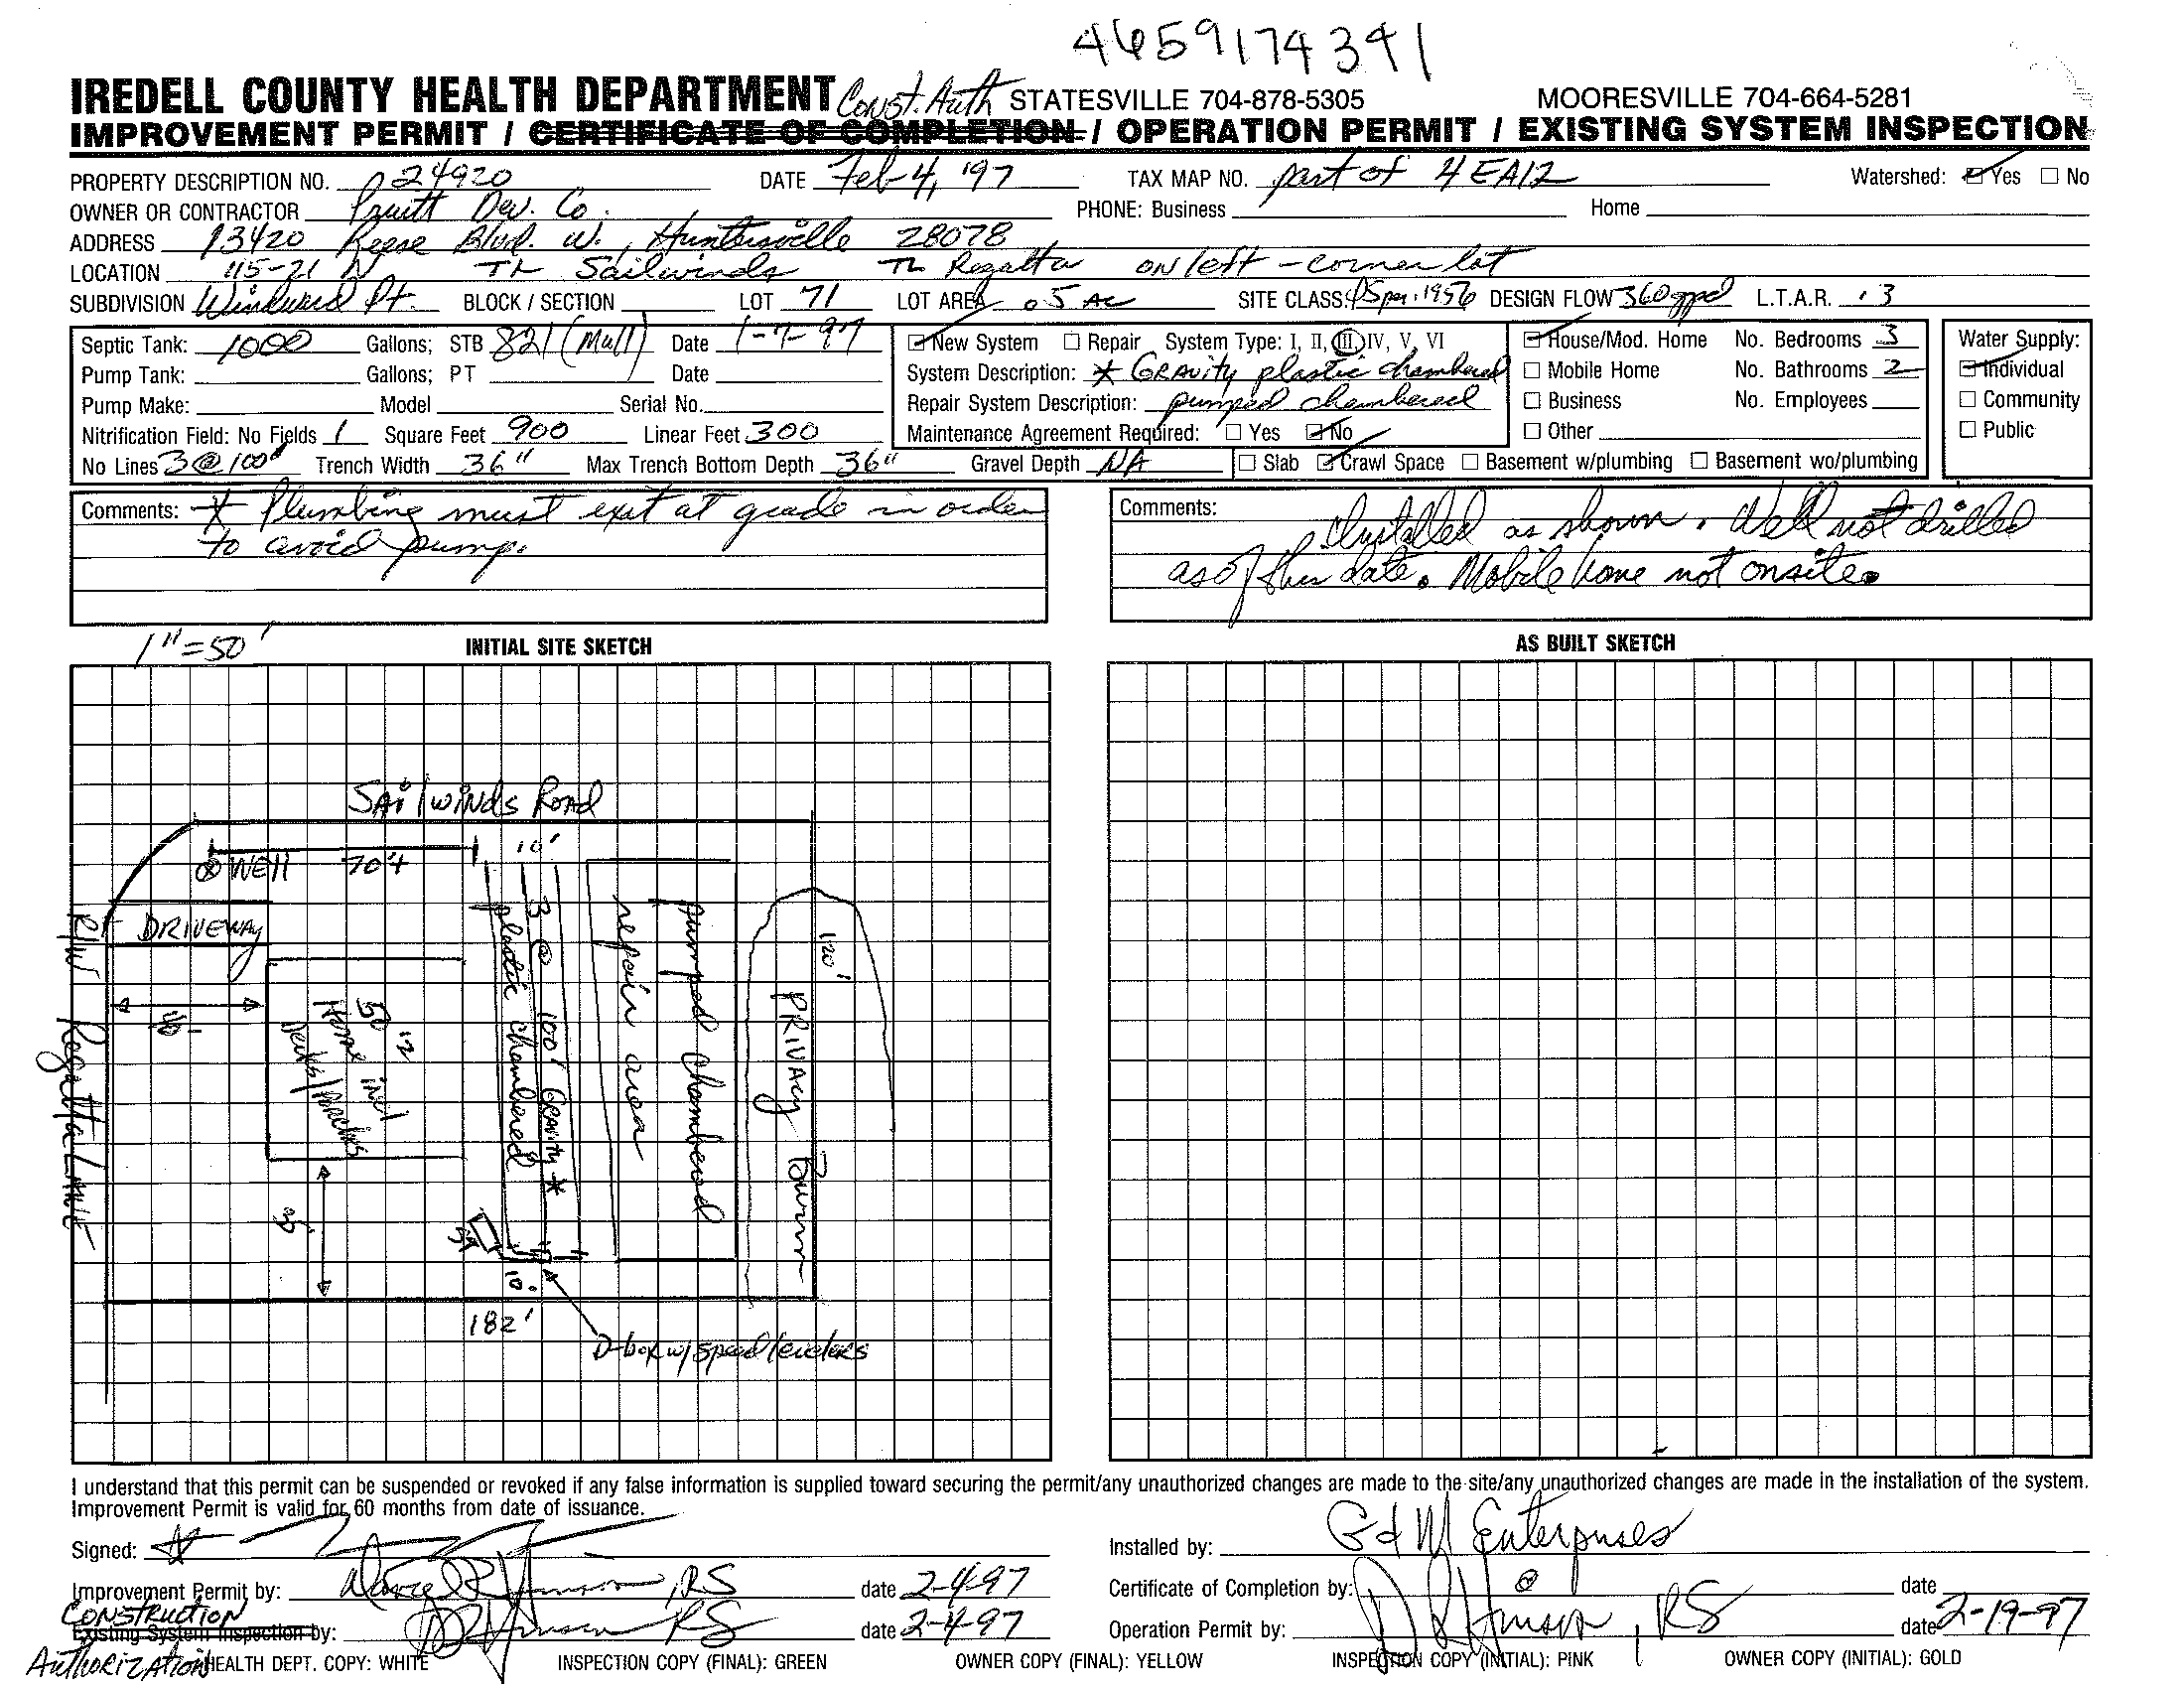 4659174391
IREDELL COUNTY HEALTH DEPARTMENT Const. Auth STATESVILLE 704-878-5305 MOORESVILLE 704-664-5281
IMPROVEMENT PERMIT / CERTIFICATE OF COMPLETION / OPERATION PERMIT / EXISTING SYSTEM INSPECTION
PROPERTY DESCRIPTION NO. 24920 DATE Feb 4, '97 TAX MAP NO. part of 4EA12 Watershed: Yes No
OWNER OR CONTRACTOR Pruitt Dev. Co. PHONE: Business Home
ADDRESS 13420 Reese Blvd. W., Huntersville 28078
LOCATION 115-21 N TL Sailwinds TL Regatta on left - corner lot
SUBDIVISION Windward Pt. BLOCK / SECTION LOT 71 LOT AREA .5 AC SITE CLASS: PS per .1956 DESIGN FLOW 360gpd L.T.A.R. .3
Septic Tank: 1000 Gallons; STB 821 (Mull) Date 1-7-97 New System Repair System Type: I, II, III, IV, V, VI House/Mod. Home No. Bedrooms 3 Water Supply:
Pump Tank: Gallons; PT Date System Description: * Gravity plastic chambered Mobile Home No. Bathrooms 2 Individual
Pump Make: Model Serial No. Repair System Description: pumped chambered Business No. Employees Community
Nitrification Field: No Fields 1 Square Feet 900 Linear Feet 300 Maintenance Agreement Required: Yes No Other Public
No Lines 3@100' Trench Width 36" Max Trench Bottom Depth 36" Gravel Depth NA Slab Crawl Space Basement w/plumbing Basement wo/plumbing
Comments: * Plumbing must exit at grade in order
to avoid pump.
Comments: Installed as shown. Well not drilled
as of this date. Mobile home not onsite.
1"=50' INITIAL SITE SKETCH AS BUILT SKETCH
SAilwinds ROAD
WEll 70'+ 10'
DRIVEWAY
R/W Regatta LANE
40'
50'
Home incl
Decks/Porches
35'
3 @ 100' GRAVITY *
plastic chambered
repair area
Pumped chambered
120'
PRIVACY
ST
10'
182'
D-box w/ speed levelers
I understand that this permit can be suspended or revoked if any false information is supplied toward securing the permit/any unauthorized changes are made to the site/any unauthorized changes are made in the installation of the system.
Improvement Permit is valid for 60 months from date of issuance.
Signed: Installed by: G & M Enterprises
Improvement Permit by: , RS date 2-4-97 Certificate of Completion by: date
CONSTRUCTION
Existing System Inspection by: RS date 2-4-97 Operation Permit by: , RS date 2-19-97
AuthORIZATION HEALTH DEPT. COPY: WHITE INSPECTION COPY (FINAL): GREEN OWNER COPY (FINAL): YELLOW INSPECTION COPY (INITIAL): PINK OWNER COPY (INITIAL): GOLD